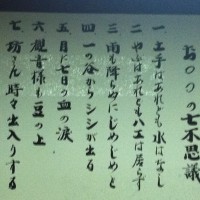 お〇〇の七不思議
一 土手はあれども水はなし
二 やぶはあれども八エは居らず
三 雨も降らぬにじめじめと
四 一の谷からシシが出る
五 月に七日の血の涙
六 観音様も豆の上
七 坊さん時々出入りする